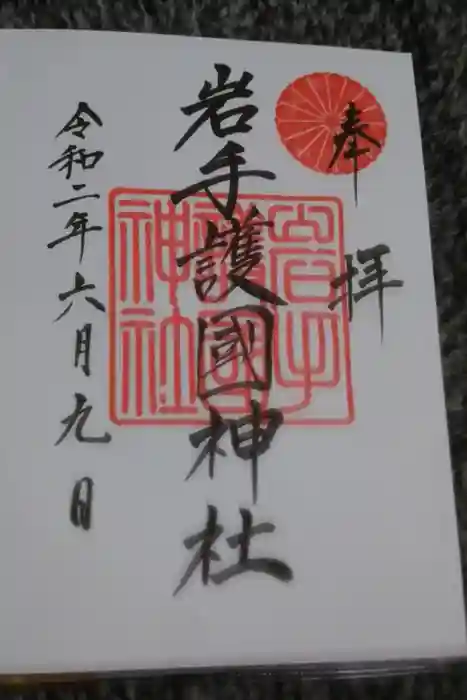 奉拝
岩手護國神社
岩手護國神社
令和二年六月九日